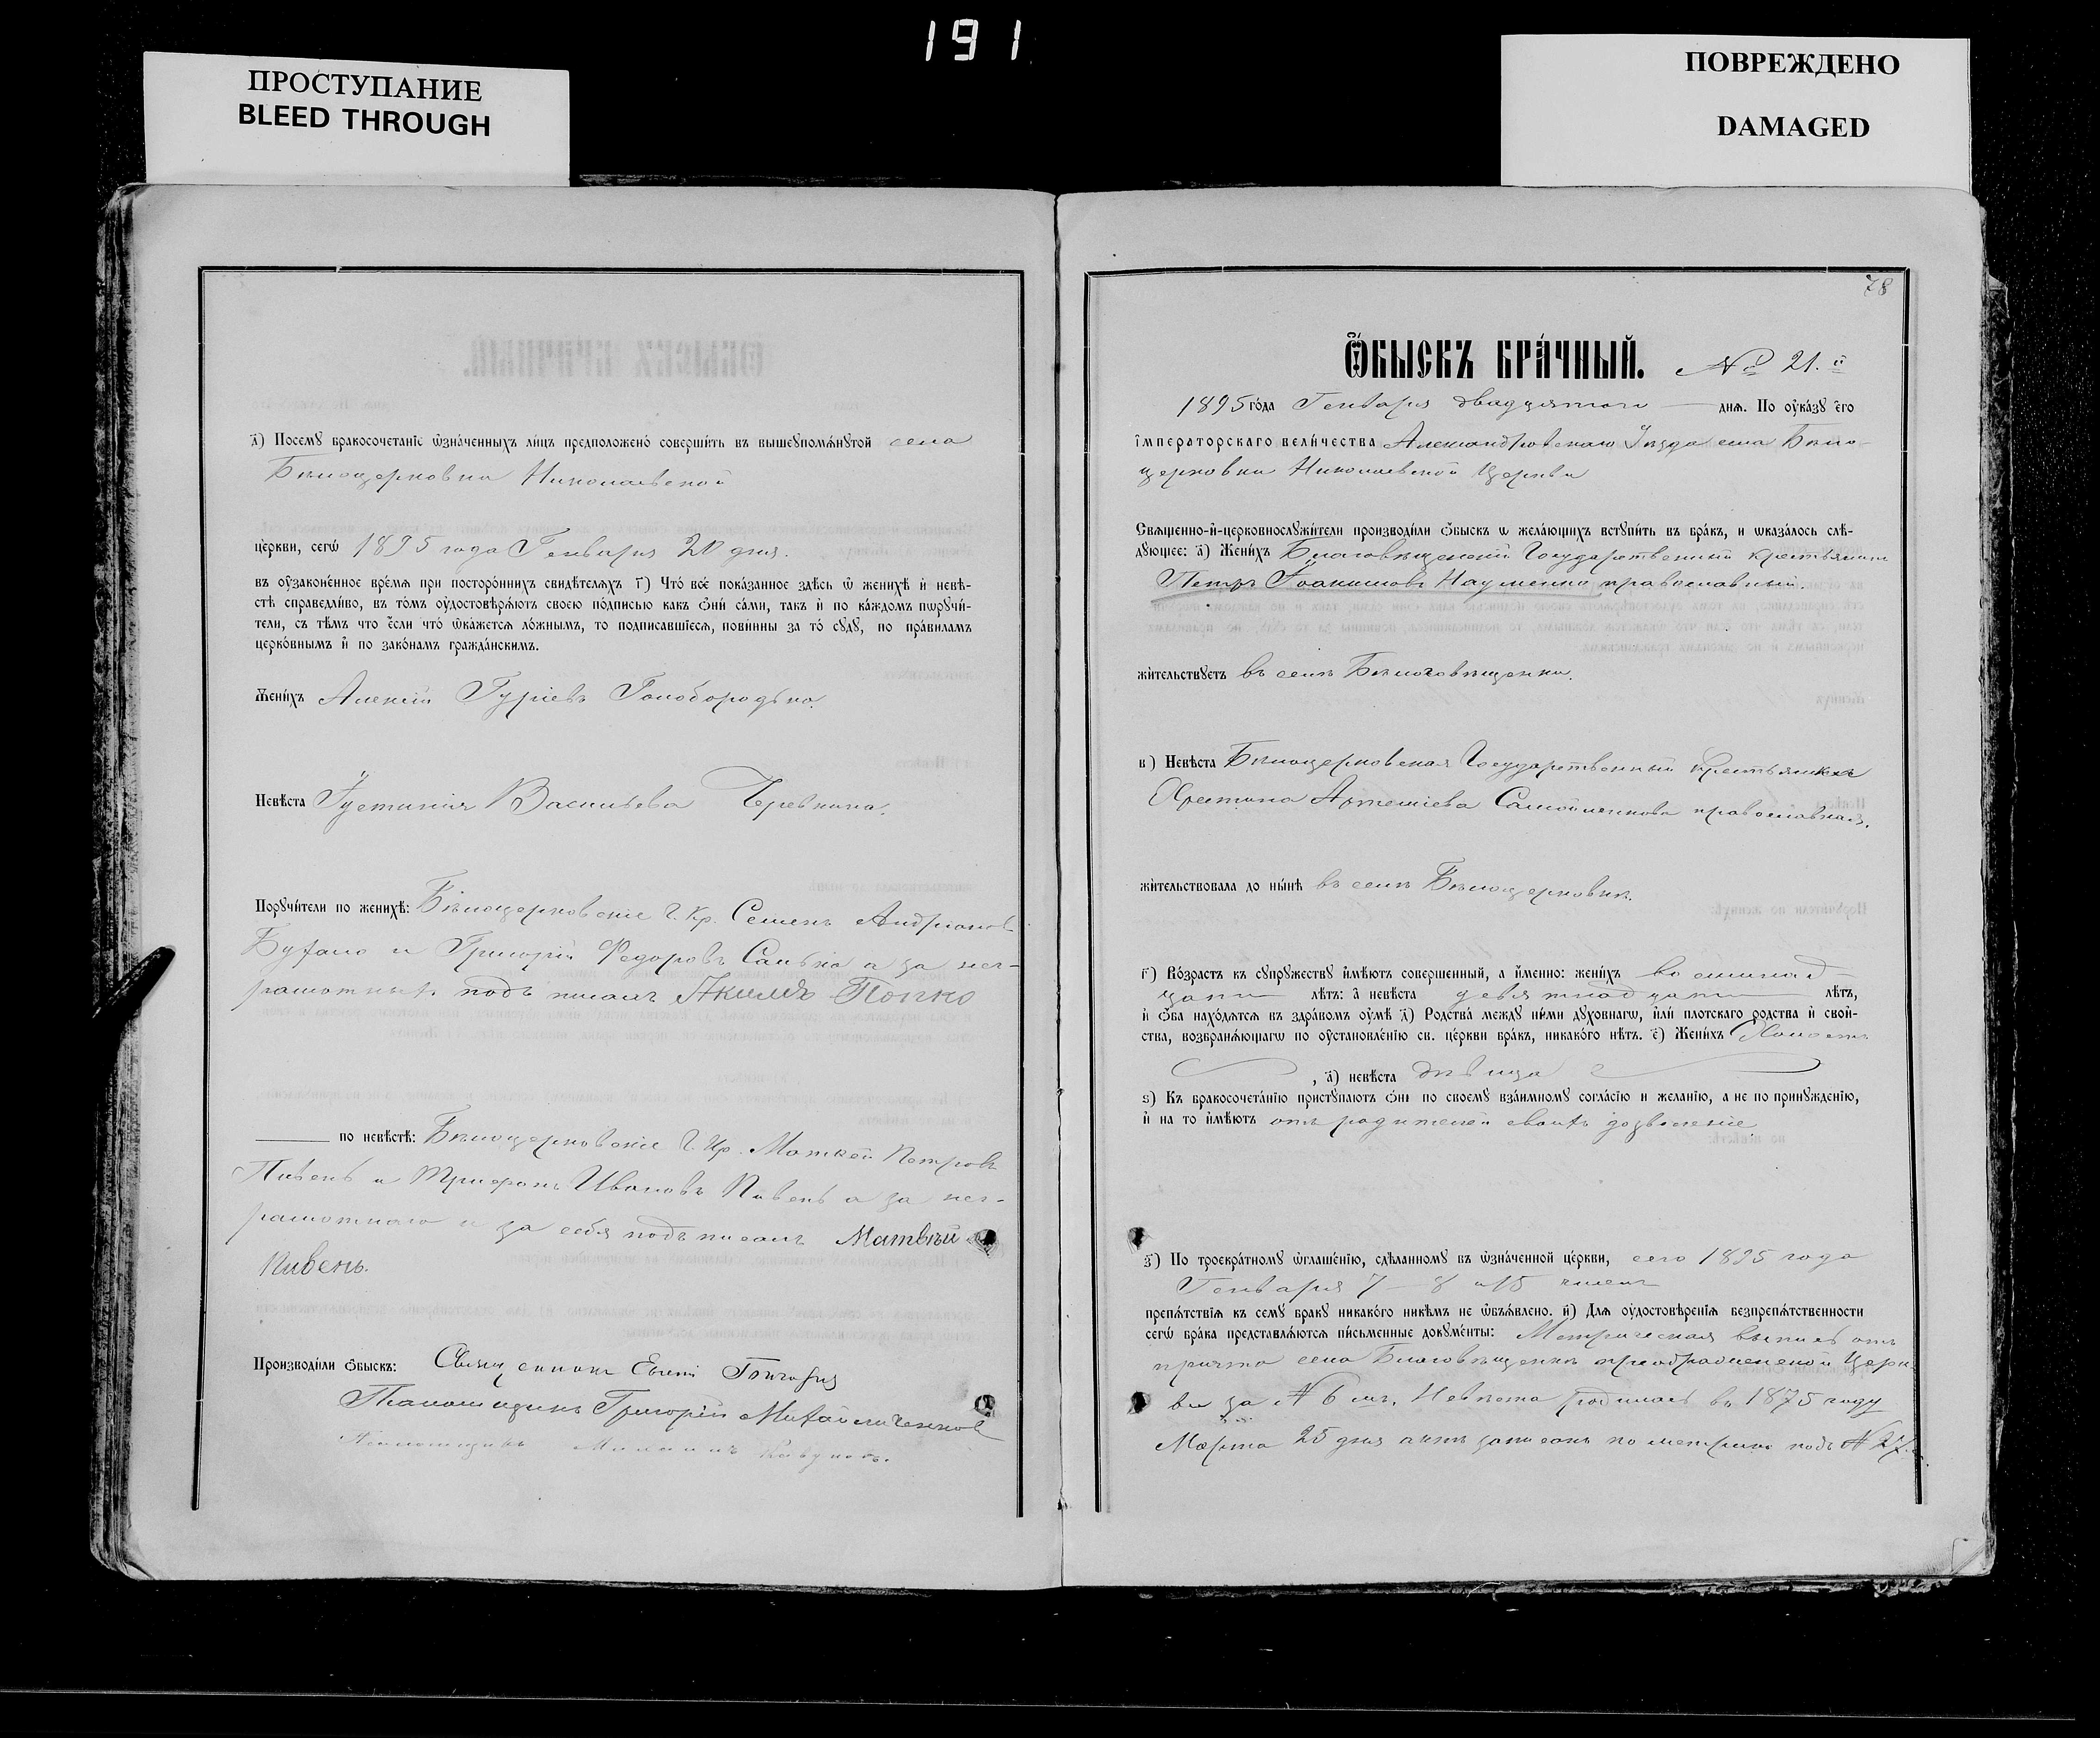 191
ПРОСТУПАНИЕ
BLEED THROUGH
ПОВРЕЖДЕНО
DAMAGED
д҃) Посемꙋ бракосочетанїе ѡзна́ченныхъ ли́цъ предположено́ соверши́ть въ вышеꙋпомѧ́нꙋтой села
Бѣлоцерковки Николаевской
це́ркви, сегѡ̀ 1895 года Генваря 20 дня.
въ оу҆зако́ненное вре́мѧ при посторо́ннихъ свидѣ́телѧхъ г҃) Что́ все́ пока́занное здѣ́сь ѡ҆ женихѣ̀ и҆ невѣ́-
стѣ справедли́во, въ то́мъ оу҆достовѣрѧ́ютъ своею по́дписью какъ ѻ҆нѝ са́ми, такъ и҆ по ка́ждомъ пѡрꙋчи́-
тели, съ тѣ́мъ что е҆́сли что́ ѡ҆ка́жетсѧ ло́жнымъ, то подписавшїесѧ, пови́нны за то́ сꙋдꙋ̀, по пра́виламъ
церко́внымъ и҆ по зако́намъ гражда́нскимъ.
Жени́хъ Алексій Гуріевъ Голобородько.
Невѣ́ста Іустинія Васильева Черевкина.
Порꙋчи́тели по женихѣ̀: Бѣлоцерковскіе Г. Кр. Семенъ Андріановъ
Бухало и Григорій Федоровъ Санько а за нег-
рамотныхъ подъписалъ Акимъ Попко
по невѣ́стѣ: Бѣлоцерковскіе Г. Кр. Матвей Петровъ
Пивень и Трифонъ Ивановъ Пивень а за нег-
рамотнаго и за себя подъписалъ Матвѣй
Пивень.
Производи́ли ѻ҆́быскъ: Священникъ Евгеній
Псаломщикъ Григорій Михайличенков
Псаломщикъ
78
Ѻ҆́БЫСКЪ БРА́ЧНЫЙ. № 21.й
1895 го́да Генваря двадцятаго днѧ. По оу҆ка́зꙋ е҆гѡ̀
і҆мпера́торскагѡ вели́чества Александровскаго Уѣзда села Бѣло-
церковки Николаевской Церкви
Свѧще́нно-и҆-церковнослꙋжи́тели производи́ли ѻ҆́быскъ ѡ жела́ющихъ встꙋпи́ть въ бра́къ, и ѡказа́лось слѣ́-
дꙋющее: а҃) Жени́хъ Благовѣщенскій Государственный крестьянинъ
Петръ Іоакимовъ Науменко православный.
жи́тельствꙋетъ въ селѣ Благовѣщенки.
в҃) Невѣ́ста Бѣлоцерковская Государственный крестьянка
Христина Артеміева Самойленкова православная.
жи́тельствовала до ны́нѣ въ селѣ Бѣлоцерковкѣ.
г҃) Во́зрастъ къ сꙋпрꙋжествꙋ и҆мѣ́ютъ соверше́нный, а и҆́менно: жени́хъ восемнад-
цати лѣ́тъ: а҆ невѣ́ста девятнадцати лѣ́тъ,
и҆ ѻ҆́ба нахо́дѧтсѧ въ здра́вомъ оу҆мѣ̀ д҃) Родства́ ме́ждꙋ ни́ми дꙋхо́внагѡ, и҆лѝ плотскаго родства и҆ свой-
ства, возбранѧ́ющагѡ по оу҆становле́нію св. це́ркви бра́къ, никако́го нѣ́тъ. е҃) Жени́хъ Холостъ
, а҃) невѣ́ста дѣвица
ѕ҃) Къ бракосочета́нїю пристꙋпа́ютъ ѻ҆нѝ по своемꙋ̀ взаи́мномꙋ согла́сїю и жела́нїю, а не по принꙋжде́нїю,
и҆ на то и҆мѣ́ютъ отъ родителей своихъ дозволеніе.
з҃) По троекра́тномꙋ ѡ҆глаше́нїю, сдѣ́ланномꙋ въ ѡзна́ченной це́ркви, сего 1895 года
Генваря 7 - 8 и 15 числъ
препѧ́тствїѧ къ семꙋ̀ бракꙋ никако́го никѣ́мъ не ѡ҆бъѧ́влено. и҃) Длѧ оу҆достовѣ́ренїѧ безпрепѧ́тственности
сегѡ̀ бра́ка представлѧ́ютсѧ пи́сьменные докꙋме́нты: Метрическая выпись отъ
причта села Благовѣщенки преображенской Церк-
ви за № 6 мъ. Невѣста родилась въ 1875 году
Марта 25 дня актъ записанъ по метрики подъ № 27.